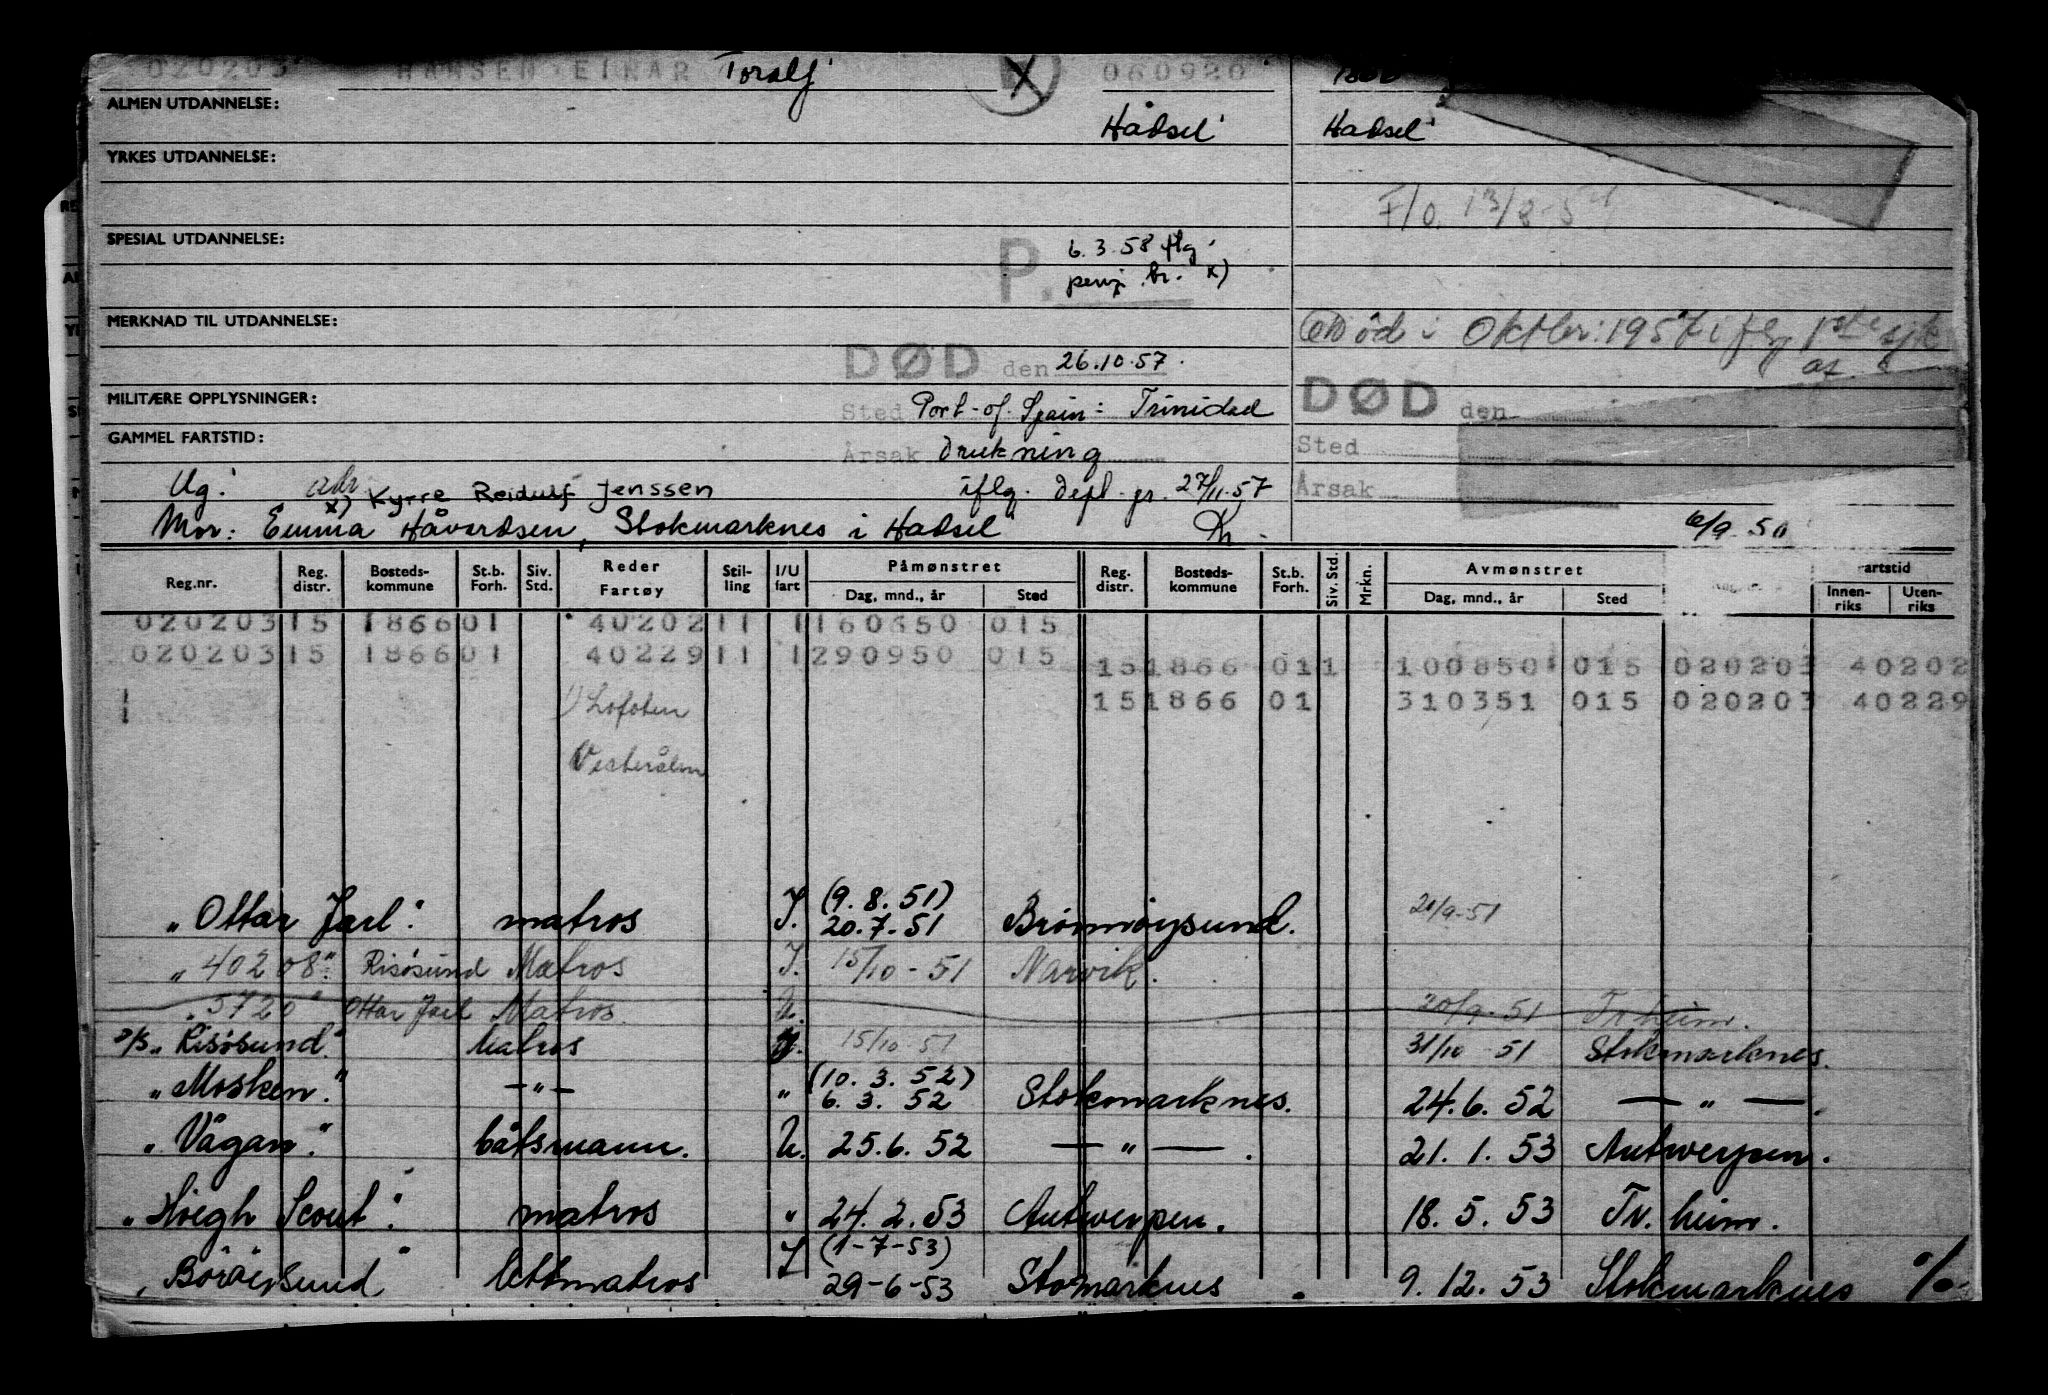 020203 HANSEN EINAR Toralf 060920
ALMEN UTDANNELSE:
Hadsel Hadsel
YRKES UTDANNELSE:
F/O. 13/8-54
SPESIAL UTDANNELSE:
P. 6.3.58 flg.
br. x)
MERKNAD TIL UTDANNELSE:
død i Oktbr: 1957 iflg
DØD den 26.10.57.
MILITÆRE OPPLYSNINGER:
Sted Port-of-Spain: Trinidad
DØD den
GAMMEL FARTSTID:
Årsak drukning
Sted
Ug:
x) Kyrre Reidulf Jenssen
iflg. depl. 27/11.57
Årsak
Mor: Emma Håvardsen, Stokmarknes i Hadsel
6/9.50
Reg.nr. Reg. distr. Bosteds-kommune St.b. Forh. Siv. Std. Reder Fartøy Stil-ling I/U fart Påmønstret Dag, mnd., år Sted Reg. distr. Bosteds-kommune St.b. Forh. Siv. Std. Mrkn. Avmønstret Dag, mnd., år Sted artstid Innen-riks Uten-riks
020203 15 1866 01 40202 11 1 160650 015
020203 15 1866 01 40229 11 1 290950 015
15 1866 01 1 100850 015 020203 40202
15 1866 01 310351 015 020203 40229
1) Lofoten
Vesterålen
"Ottar Jarl". matros I. (9.8.51) 20.7.51 Brønnøysund. 20/9-51
"40208" Risøsund Matros I. 15/10-51 Narvik.
"5720" Ottar Jarl Matros U. 20/9.51 Tr.heim.
D/S "Risøsund". Matros 15/10-51 31/10-51 Stokmarknes.
"Mosken". —"— " (10.3.52) 6.3.52 Stokmarknes. 24.6.52 —"—.
"Vågan". båtsmann. U. 25.6.52 —"—. 21.1.53 Antwerpen.
"Høegh Scout". matros " 24.2.53 Antwerpen. 18.5.53 Tr.heim.
"Børøysund" lettmatros I (1-7-53) 29-6-53 Stomarknes. 9.12.53 Stokmarknes %